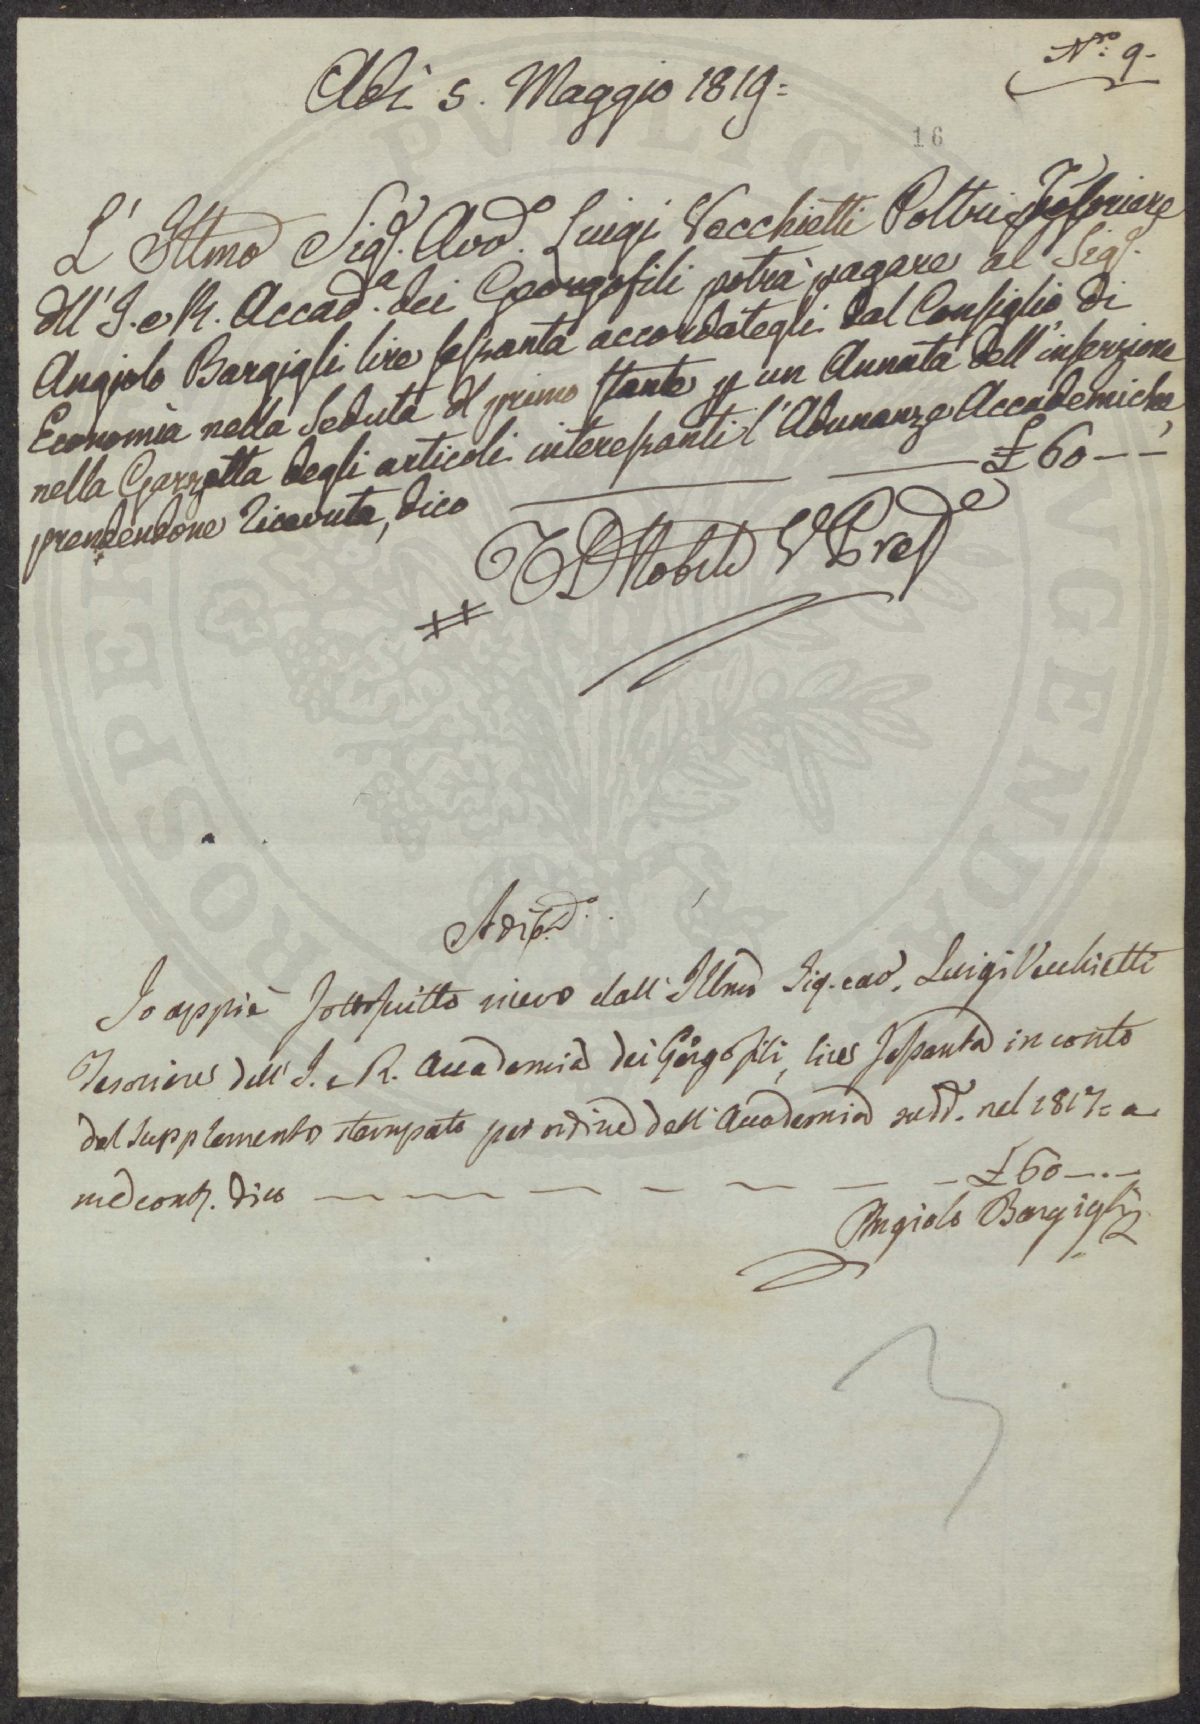 N.ro 9.
Adì 5. Maggio 1819=
16
L'Illmo Sig.r Avv.o Luigi Vecchietti Poltri Tesoriere
dell'I. e R. Accad.a dei Georgofili potrà pagare al Sig.r
Angiolo Bargigli lire sessanta accordategli dal Consiglio di
Economia nella Seduta del primo stante p un Annata dell'inserzione
nella Gazzetta degli articoli interessanti l'Adunanze Accademiche,
prendendone ricevuta, dico £ 60 – –
V Pres.e
Adì d.o
Io appiè sottoscritto ricevo dall'Illmo Sig. cav. Luigi Vecchietti
Tesoriere dell'I. e R. Accademia dei Georgofili, lire sessanta in conto
del supplemento stampato per ordine dell'Accademia sudd. nel 1817= a
me cont. dico £ 60 –.–
Angiolo Bargigli